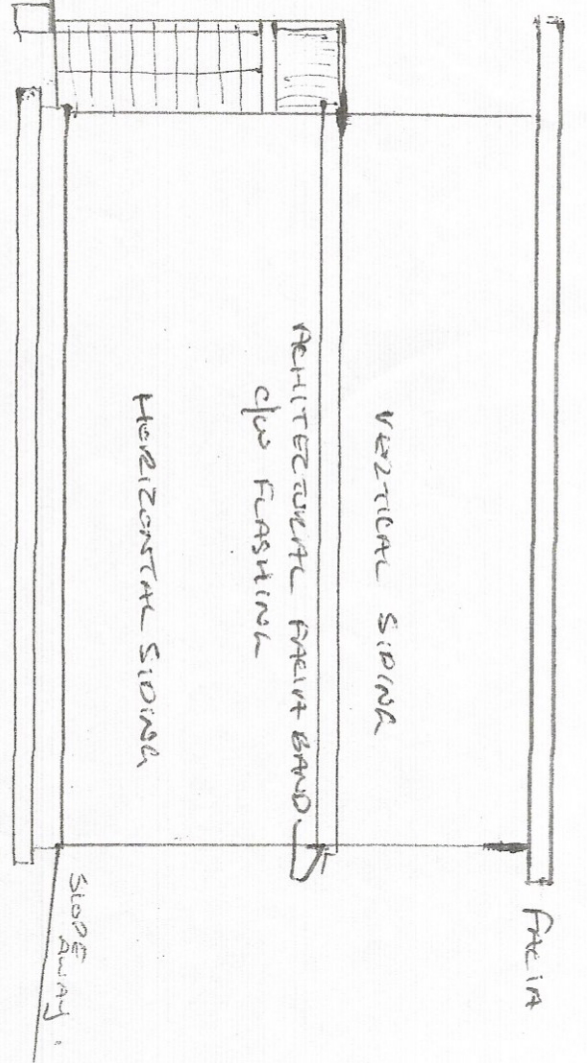 FACIA
VERTICAL SIDING
ARCHITECTURAL FACIA BAND
c/w FLASHING
HORIZONTAL SIDING
SLOPE
AWAY.